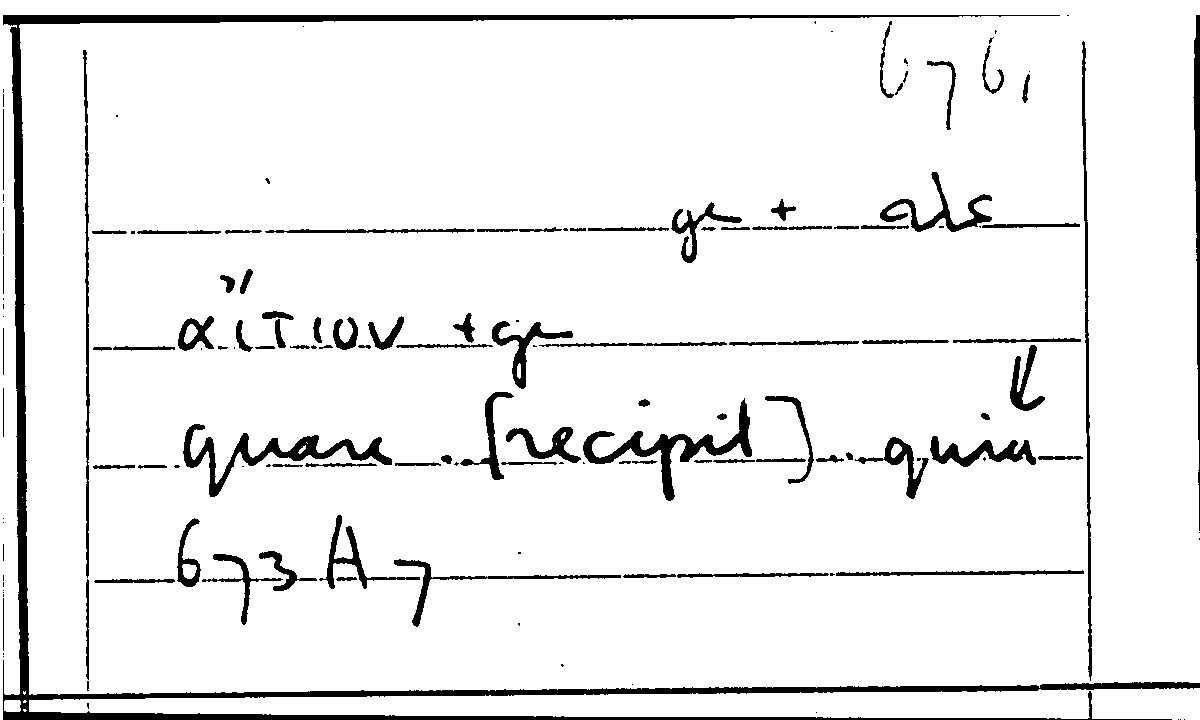 676,
ge + abs
αἴτιον + ge
quare .. [recipit] ... quia
673 A 7